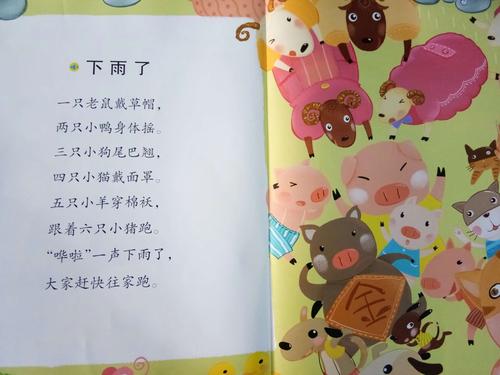 下雨了
一只老鼠戴草帽，
两只小鸭身体摇。
三只小狗尾巴翘，
四只小猫戴面罩。
五只小羊穿棉袄，
跟着六只小猪跑。
“哗啦”一声下雨了，
大家赶快往家跑。